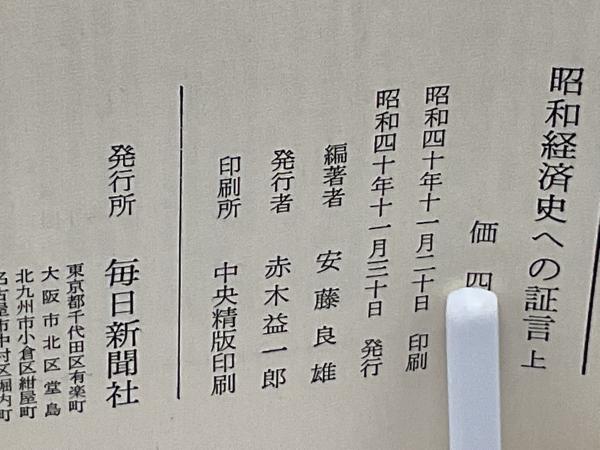 昭和経済史への証言 上
価 四
昭和四十年十一月二十日 印刷
昭和四十年十一月三十日 発行
編著者 安藤良雄
発行者 赤木益一郎
印刷所 中央精版印刷
発行所 毎日新聞社
東京都千代田区有楽町
大阪市北区堂島
北九州市小倉区紺屋町
名古屋市中村区堀内町